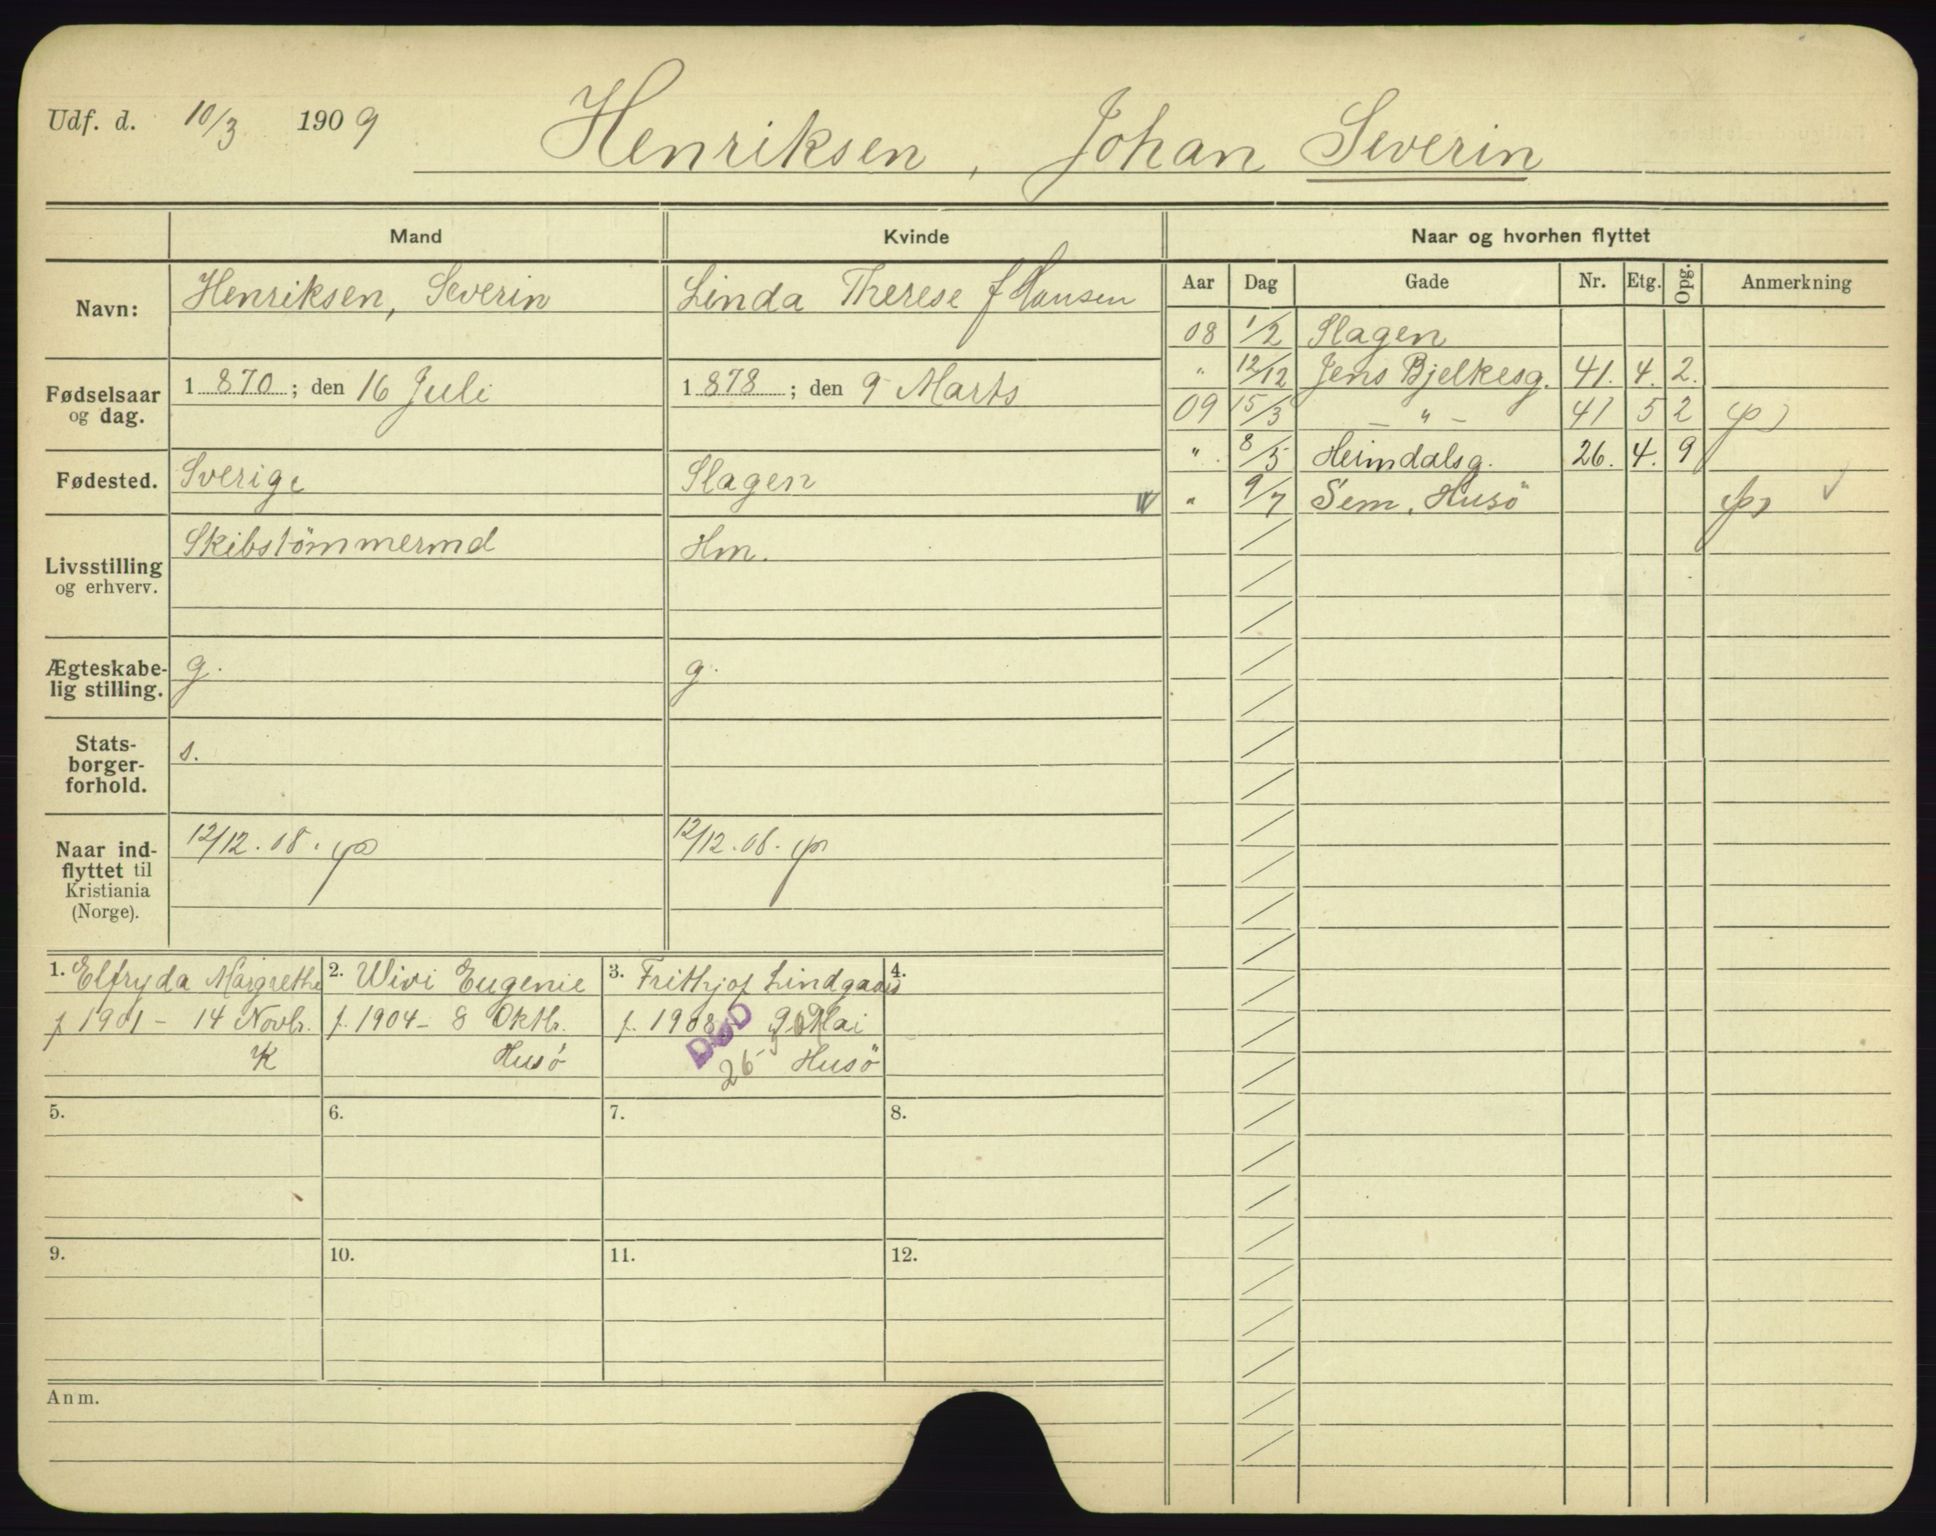 Udf. d. 10/3 1909 Henriksen, Johan Severin
Mand Kvinde Naar og hvorhen flyttet
Aar Dag Gade Nr. Etg. Opg. Anmerkning
Navn: Henriksen, Severin Linda Therese f Hansen
08 1/2 Slagen
" 12/12 Jens Bjelkesg. 41. 4. 2.
Fødselsaar og dag. 1870; den 16 Juli 1878; den 9 Marts
09 15/3 — " — 41 5 2
" 8/5 Heimdalsg. 26. 4. 9
Fødested. Sverige Slagen
" 9/7 Sem, Husö
Livsstilling og erhverv. Skibstömmermd Hm.
Ægteskabe-
lig stilling. g. g.
Stats-
borger-
forhold. s.
Naar ind-
flyttet til
Kristiania
(Norge). 12/12.08. 12/12.08.
1. Elfryda Margrethe
f 1901 - 14 Novbr.
K
2. Wivi Eugenie
f. 1904 - 8 Oktbr.
Husö
3. Frithjof Lindgaard
f. 1908 9 Mai
DØD
26 Husö
4.
5. 6. 7. 8.
9. 10. 11. 12.
Anm.